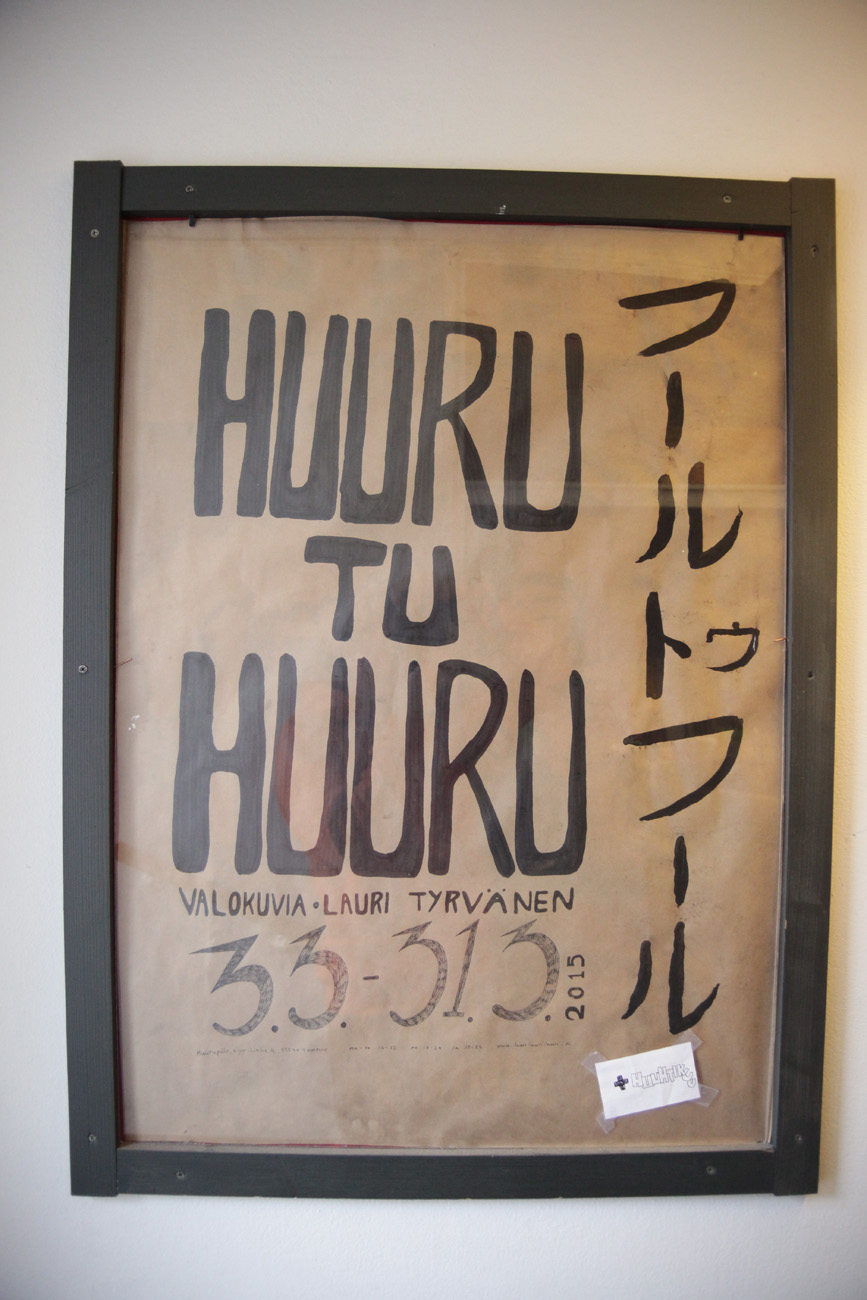 HUURU
TU
HUURU
フールトゥフール
VALOKUVIA • LAURI TYRVÄNEN
3.3. - 31.3.
2015